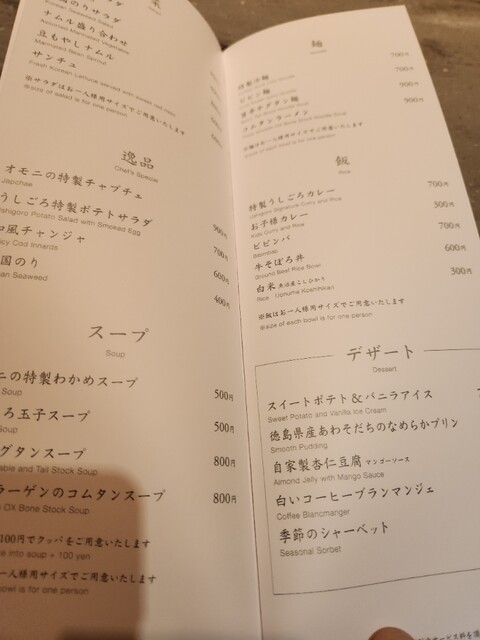 菜
国のりサラダ
Korean Seaweed Salad
ナムル盛り合わせ
Assorted Marinated Vegetables
豆もやしナムル
Marinated Bean Sprout
サンチュ
Fresh Korean Lettuce served with sweet red miso
※サラダはお一人様用サイズでご用意いたします
※size of salad is for one person
逸品
Chef's Special
オモニの特製チャプチェ
Japchae
900円
うしごろ特製ポテトサラダ
Ushigoro Potato Salad with Smoked Egg
700円
和風チャンジャ
Spicy Cod Innards
600円
国のり
Seaweed
400円
スープ
Soup
ニの特製わかめスープ
Soup
500円
ろ玉子スープ
Soup
500円
グタンスープ
able and Tail Stock Soup
800円
ラーゲンのコムタンスープ
OX Bone Stock Soup
800円
100円でクッパをご用意いたします
e into soup + 100 yen
一人様用サイズでご用意いたします
owl is for one person
麺
700円
冷麺
700円
ビビン麺
900円
900円
コムタンラーメン
※麺はお一人様用サイズでご用意いたします
※size of each bowl is for one person
飯
Rice
特製うしごろカレー
Ushigoro Signature Curry and Rice
700円
お子様カレー
Kids Curry and Rice
300円
ビビンバ
Bibimbap
700円
牛そぼろ丼
Ground Beef Rice Bowl
600円
白米 魚沼産こしひかり
Rice Uonuma Koshihikari
300円
※飯はお一人様用サイズでご用意いたします
※size of each bowl is for one person
デザート
Dessert
スイートポテト&バニラアイス
Sweet Potato and Vanilla Ice Cream
徳島県産あわそだちのなめらかプリン
Smooth Pudding
自家製杏仁豆腐 マンゴーソース
Almond Jelly with Mango Sauce
白いコーヒーブランマンジェ
Coffee Blancmanger
季節のシャーベット
Seasonal Sorbet